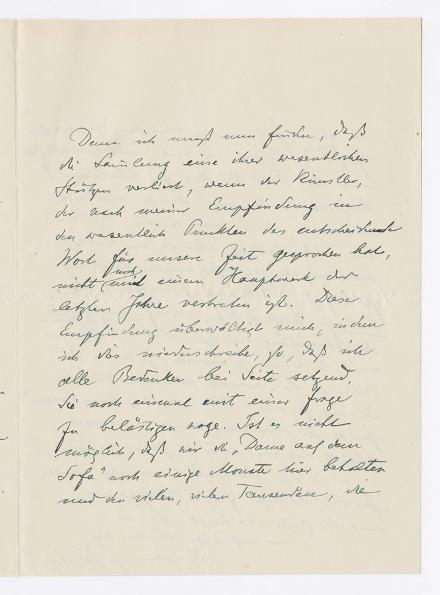 Denn ich muß nun finden, daß
die Samlung eine ihrer wesentlichen
Stützen verliert, wenn der Künstler,
der nach meiner Empfindung in
den wesentlich Punkten das entscheidende
Wort für unsere Zeit gesprochen hat,
nicht auch mit einem Hauptwerk der
letzten Jahre vertreten ist. Diese
Empfindung überwältigt mich, indem
ich dies niederschreibe, so, daß ich
alle Bedenken bei Seite setzend,
Sie noch einmal mit einer Frage
zu belästigen wage. Ist es nicht
möglich, daß wir die „Dame auf dem
Sofa" noch einige Monate hier behalten
und den vielen, vielen Tausenden, die